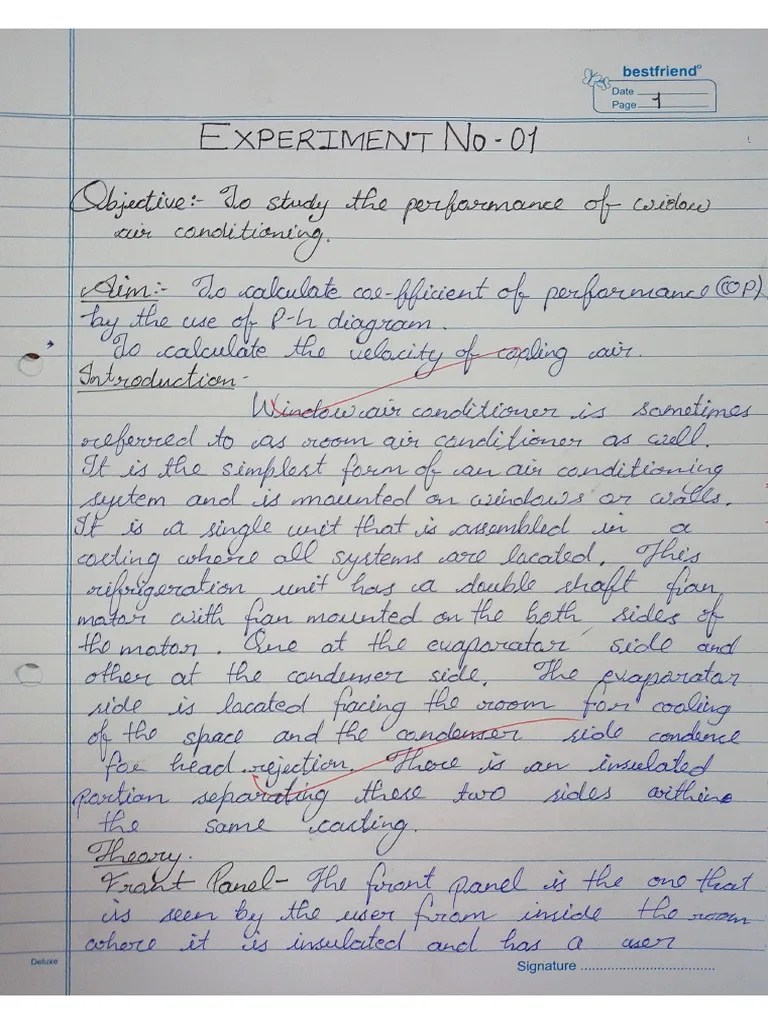 bestfriend
Date
Page 1
EXPERIMENT No-01
Objective:- To study the performance of widow
air conditioning.
Aim:- To calculate coe-fficient of performance (COP)
by the use of P-h diagram.
To calculate the velocity of cooling air.
Introduction-
Window air conditioner is sometimes
referred to as room air conditioner as well.
It is the simplest form of an air conditioning
system and is mounted on windows or walls.
It is a single unit that is assembled in a
casting where all systems are located. This
rifrigeration unit has a double shaft fan
motor with fan mounted on the both sides of
the motor. One at the evaporator side and
other at the condenser side. The evaporator
side is located facing the room for cooling
of the space and the condenser side condence
for head rejection. There is an insulated
partion separating these two sides withine
the same casting.
Theory.
Front Panel- The front panel is the one that
is seen by the user from inside the room
where it is insulated and has a user
Deluxe
Signature